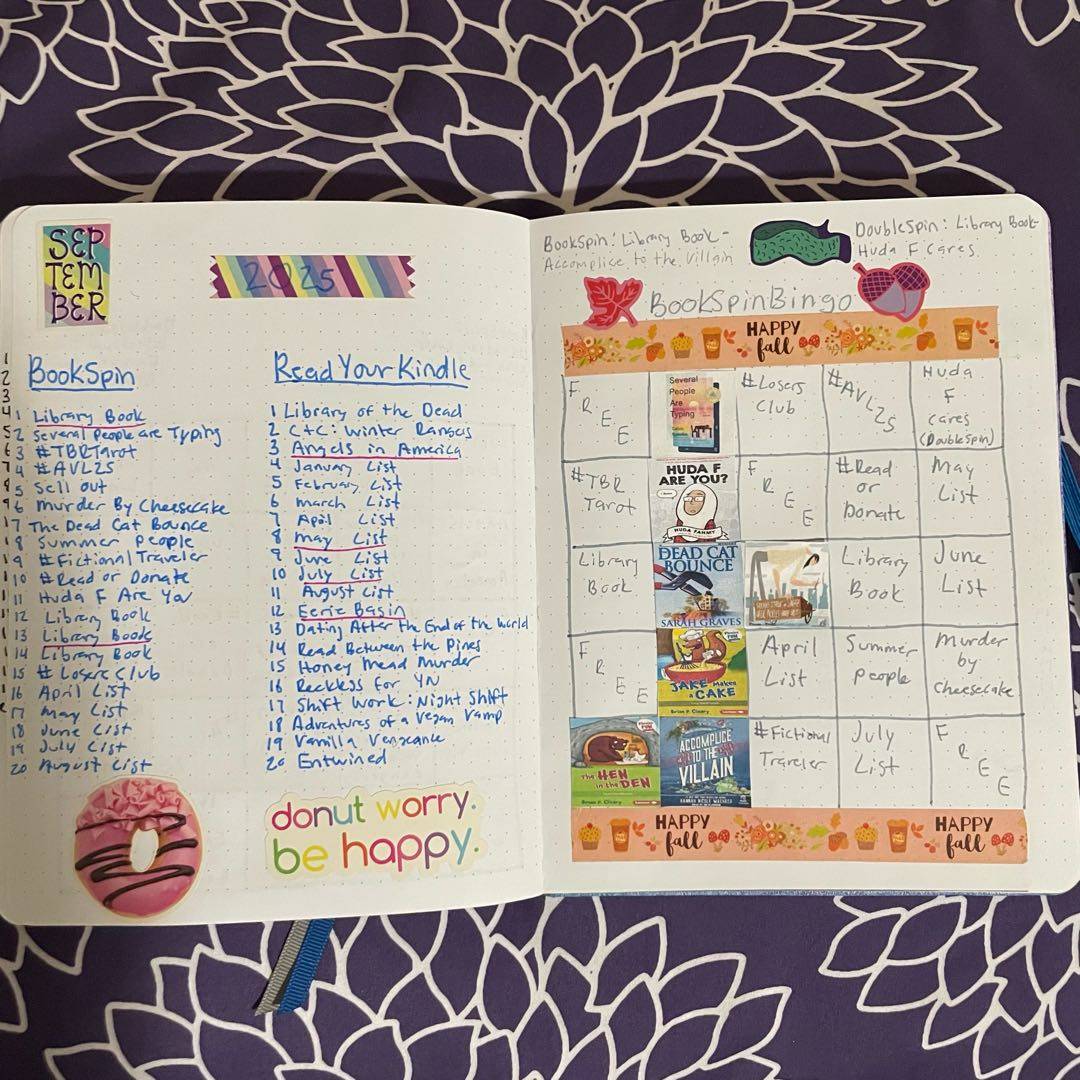 SEP
TEM
BER
2025
BookSpin
1 Library Book
2 Several People are Typing
3 #TBRTarot
4 #AVL25
5 Sell Out
6 Murder By Cheesecake
7 The Dead Cat Bounce
8 Summer People
9 #Fictional Traveler
10 #Read or Donate
11 Huda F Are You
12 Library Book
13 Library Book
14 Library Book
15 #Losers Club
16 April List
17 May List
18 June List
19 July List
20 August List
Read Your Kindle
1 Library of the Dead
2 C+C: Winter Rangers
3 Angels in America
4 January List
5 February List
6 March List
7 April List
8 May List
9 June List
10 July List
11 August List
12 Eerie Basin
13 Dating After the End of the World
14 Read Between the Pines
15 Honey Mead Murder
16 Reckless for YN
17 Shift Work: Night Shift
18 Adventures of a Vegan Vamp
19 Vanilla Vengeance
20 Entwined
donut worry.
be happy.
BookSpin: Library Book -
Accomplice to the Villain
DoubleSpin: Library Book-
Huda F Cares
BookSpinBingo
HAPPY
fall
FREE
Several
People
Are
Typing
#Losers
Club
#AVL25
Huda
F
cares
(DoubleSpin)
#TBR
Tarot
HUDA F
ARE YOU?
HUDA FAHMY
FREE
#Read
or
Donate
May
List
Library
Book
DEAD CAT
BOUNCE
SARAH GRAVES
Library
Book
June
List
FREE
JAKE Makes
a CAKE
Brian P. Cleary
April
List
Summer
People
Murder
by
Cheesecake
The HEN
in the DEN
Brian P. Cleary
ACCOMPLICE
TO THE
VILLAIN
HANNAH NICOLE MAEHRER
#Fictional
Traveler
July
List
FREE
HAPPY
fall
HAPPY
fall